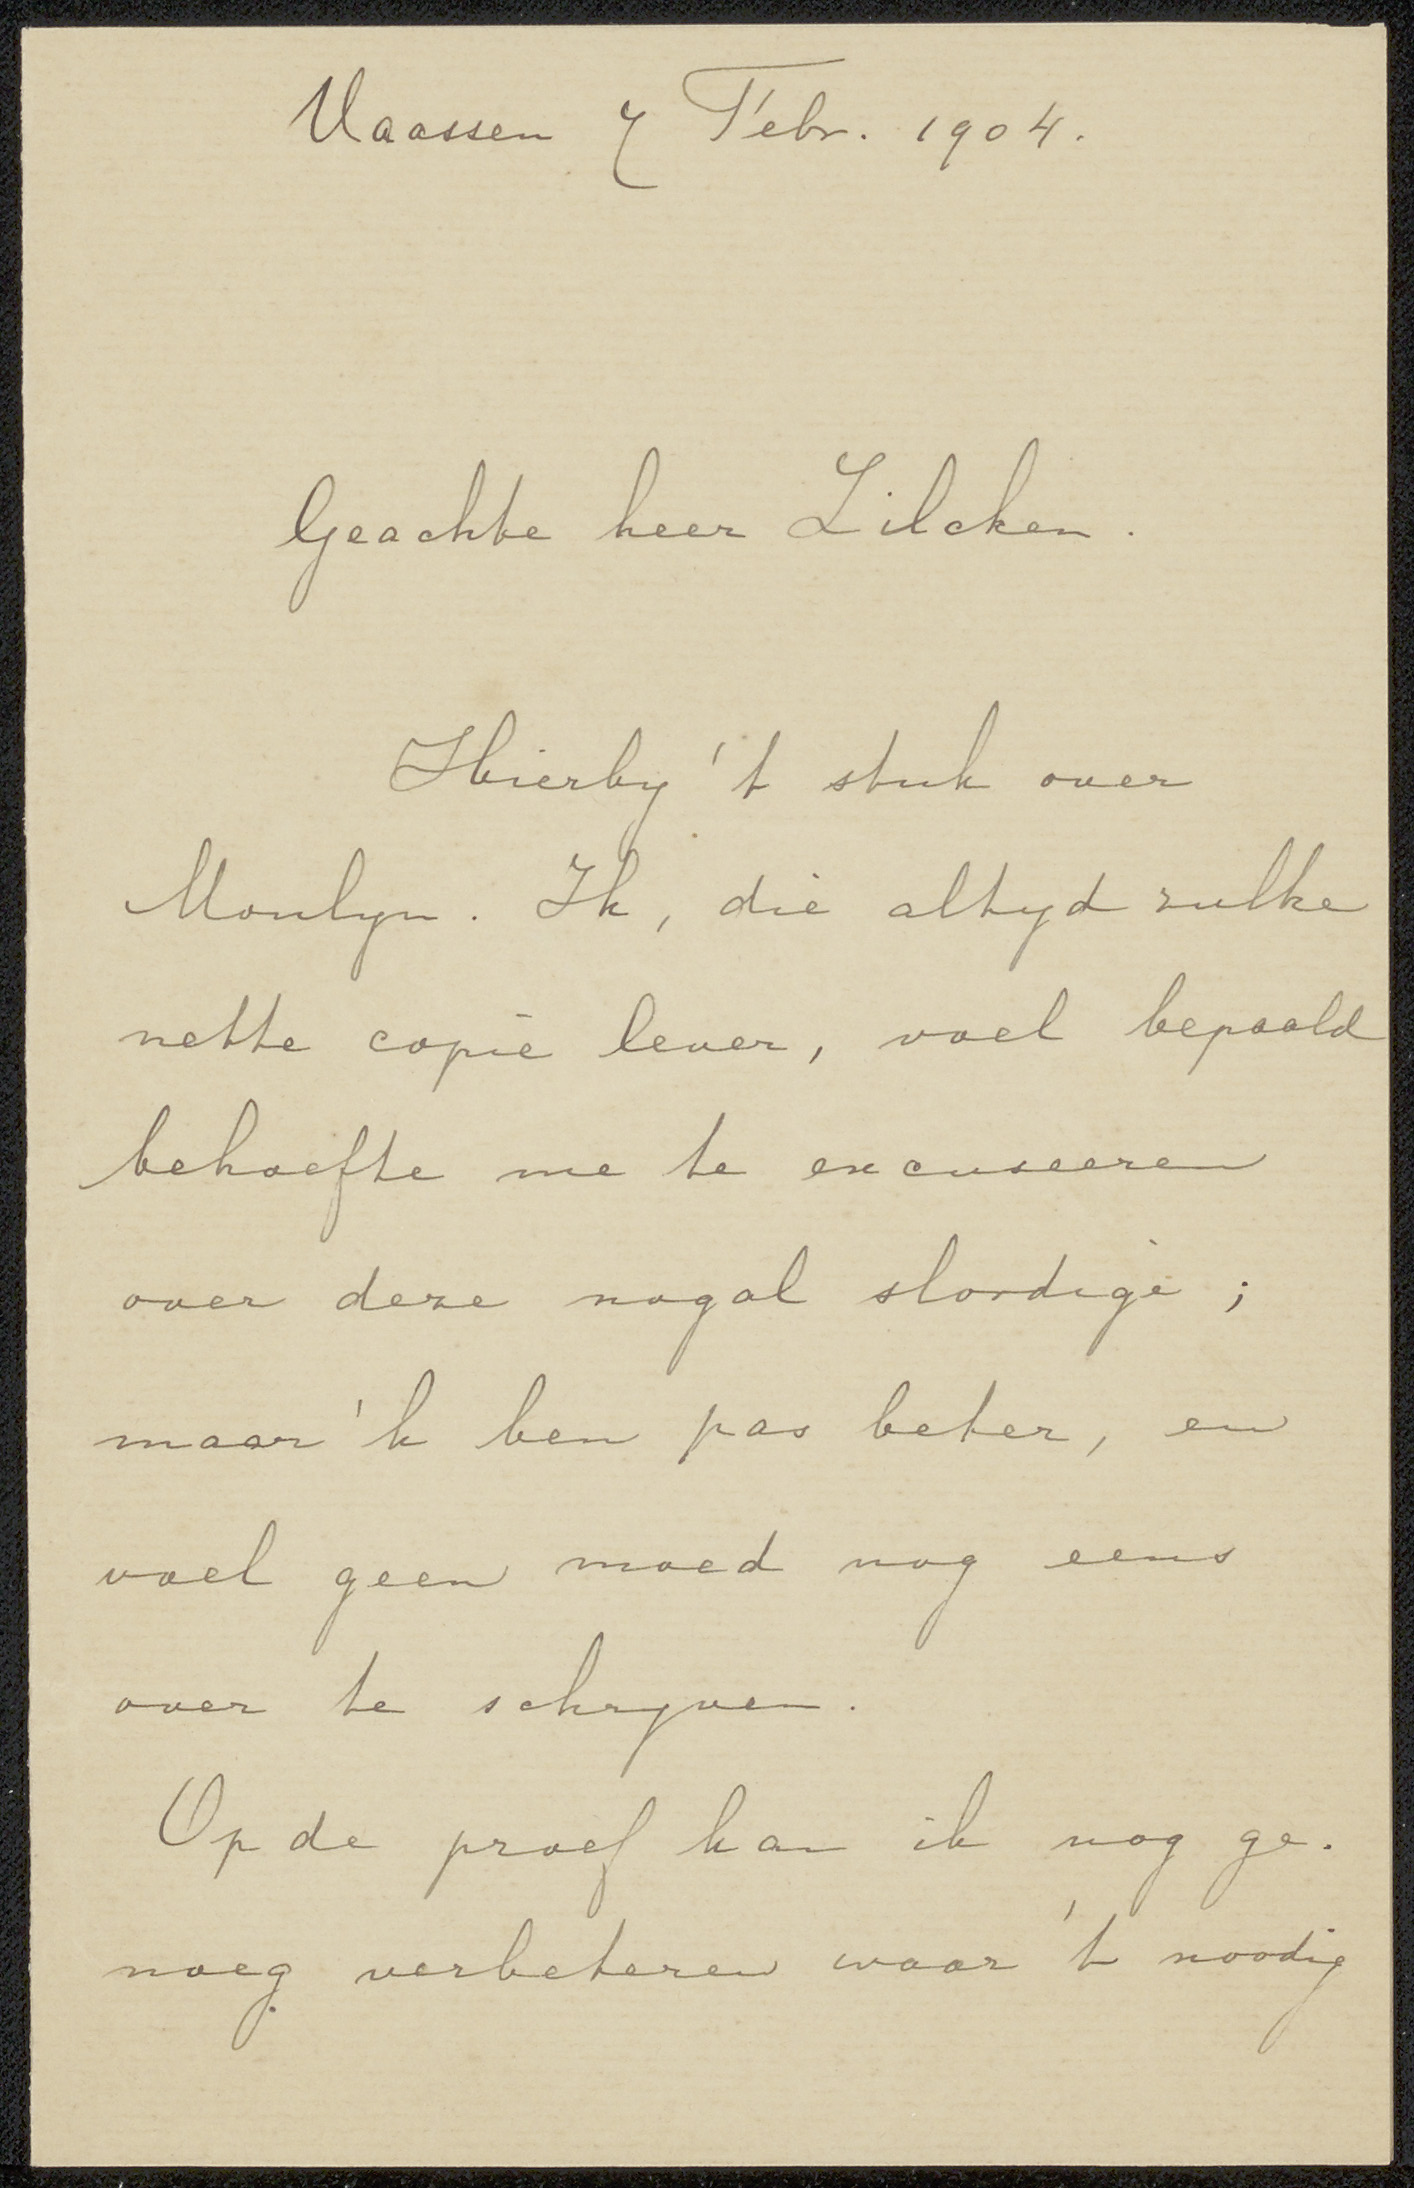 Vaassen 7 Febr. 1904.
Geachte heer Zilcken.
Hierby 't stuk over
Moulyn. Ik, die altyd zulke
nette copie lever, voel bepaald
behoefte me te excuseeren
over deze nogal slordige ;
maar 'k ben pas beter, en
voel geen moed nog eens
over te schryven.
Op de proef kan ik nog ge-
noeg verbeteren waar 't noodig